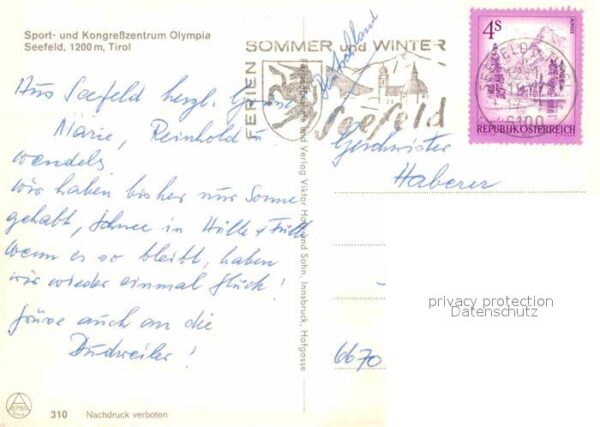 Sport- und Kongreßzentrum Olympia
Seefeld, 1200 m, Tirol
Aus Seefeld herzl. Grüße
Marie, Reinhold u
wendels
wir haben bisher nur Sonne
gehabt, Schnee in Hülle + Fülle
wenn es so bleibt, haben
wir wieder einmal Glück!
Grüße auch an die
Dudweiler!
310 Nachdruck verboten
und Verlag Viktor
und Sohn, Innsbruck, Hofgasse
FERIEN
SOMMER und WINTER
Seefeld
Deutschland
4S
REPUBLIK ÖSTERREICH
6100
Geschwister
Haberer
6670
privacy protection
Datenschutz